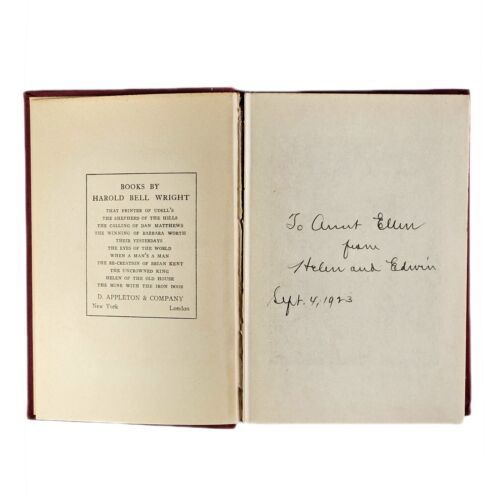 BOOKS BY
HAROLD BELL WRIGHT
THAT PRINTER OF UDELL'S
THE SHEPHERD OF THE HILLS
THE CALLING OF DAN MATTHEWS
THE WINNING OF BARBARA WORTH
THEIR YESTERDAYS
THE EYES OF THE WORLD
WHEN A MAN'S A MAN
THE RE-CREATION OF BRIAN KENT
THE UNCROWNED KING
HELEN OF THE OLD HOUSE
THE MINE WITH THE IRON DOOR
D. APPLETON & COMPANY
New York London
To Aunt Ellen
from
Helen and Edwin
Sept. 4, 1923